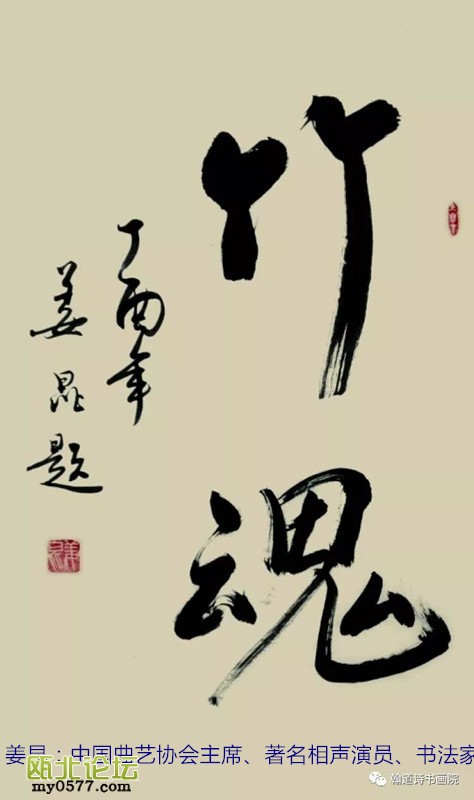 竹魂
丁酉年
姜昆题
姜昆：中国曲艺协会主席、著名相声演员、书法家
瓯北论坛
my0577.com
瀚道诗书画院